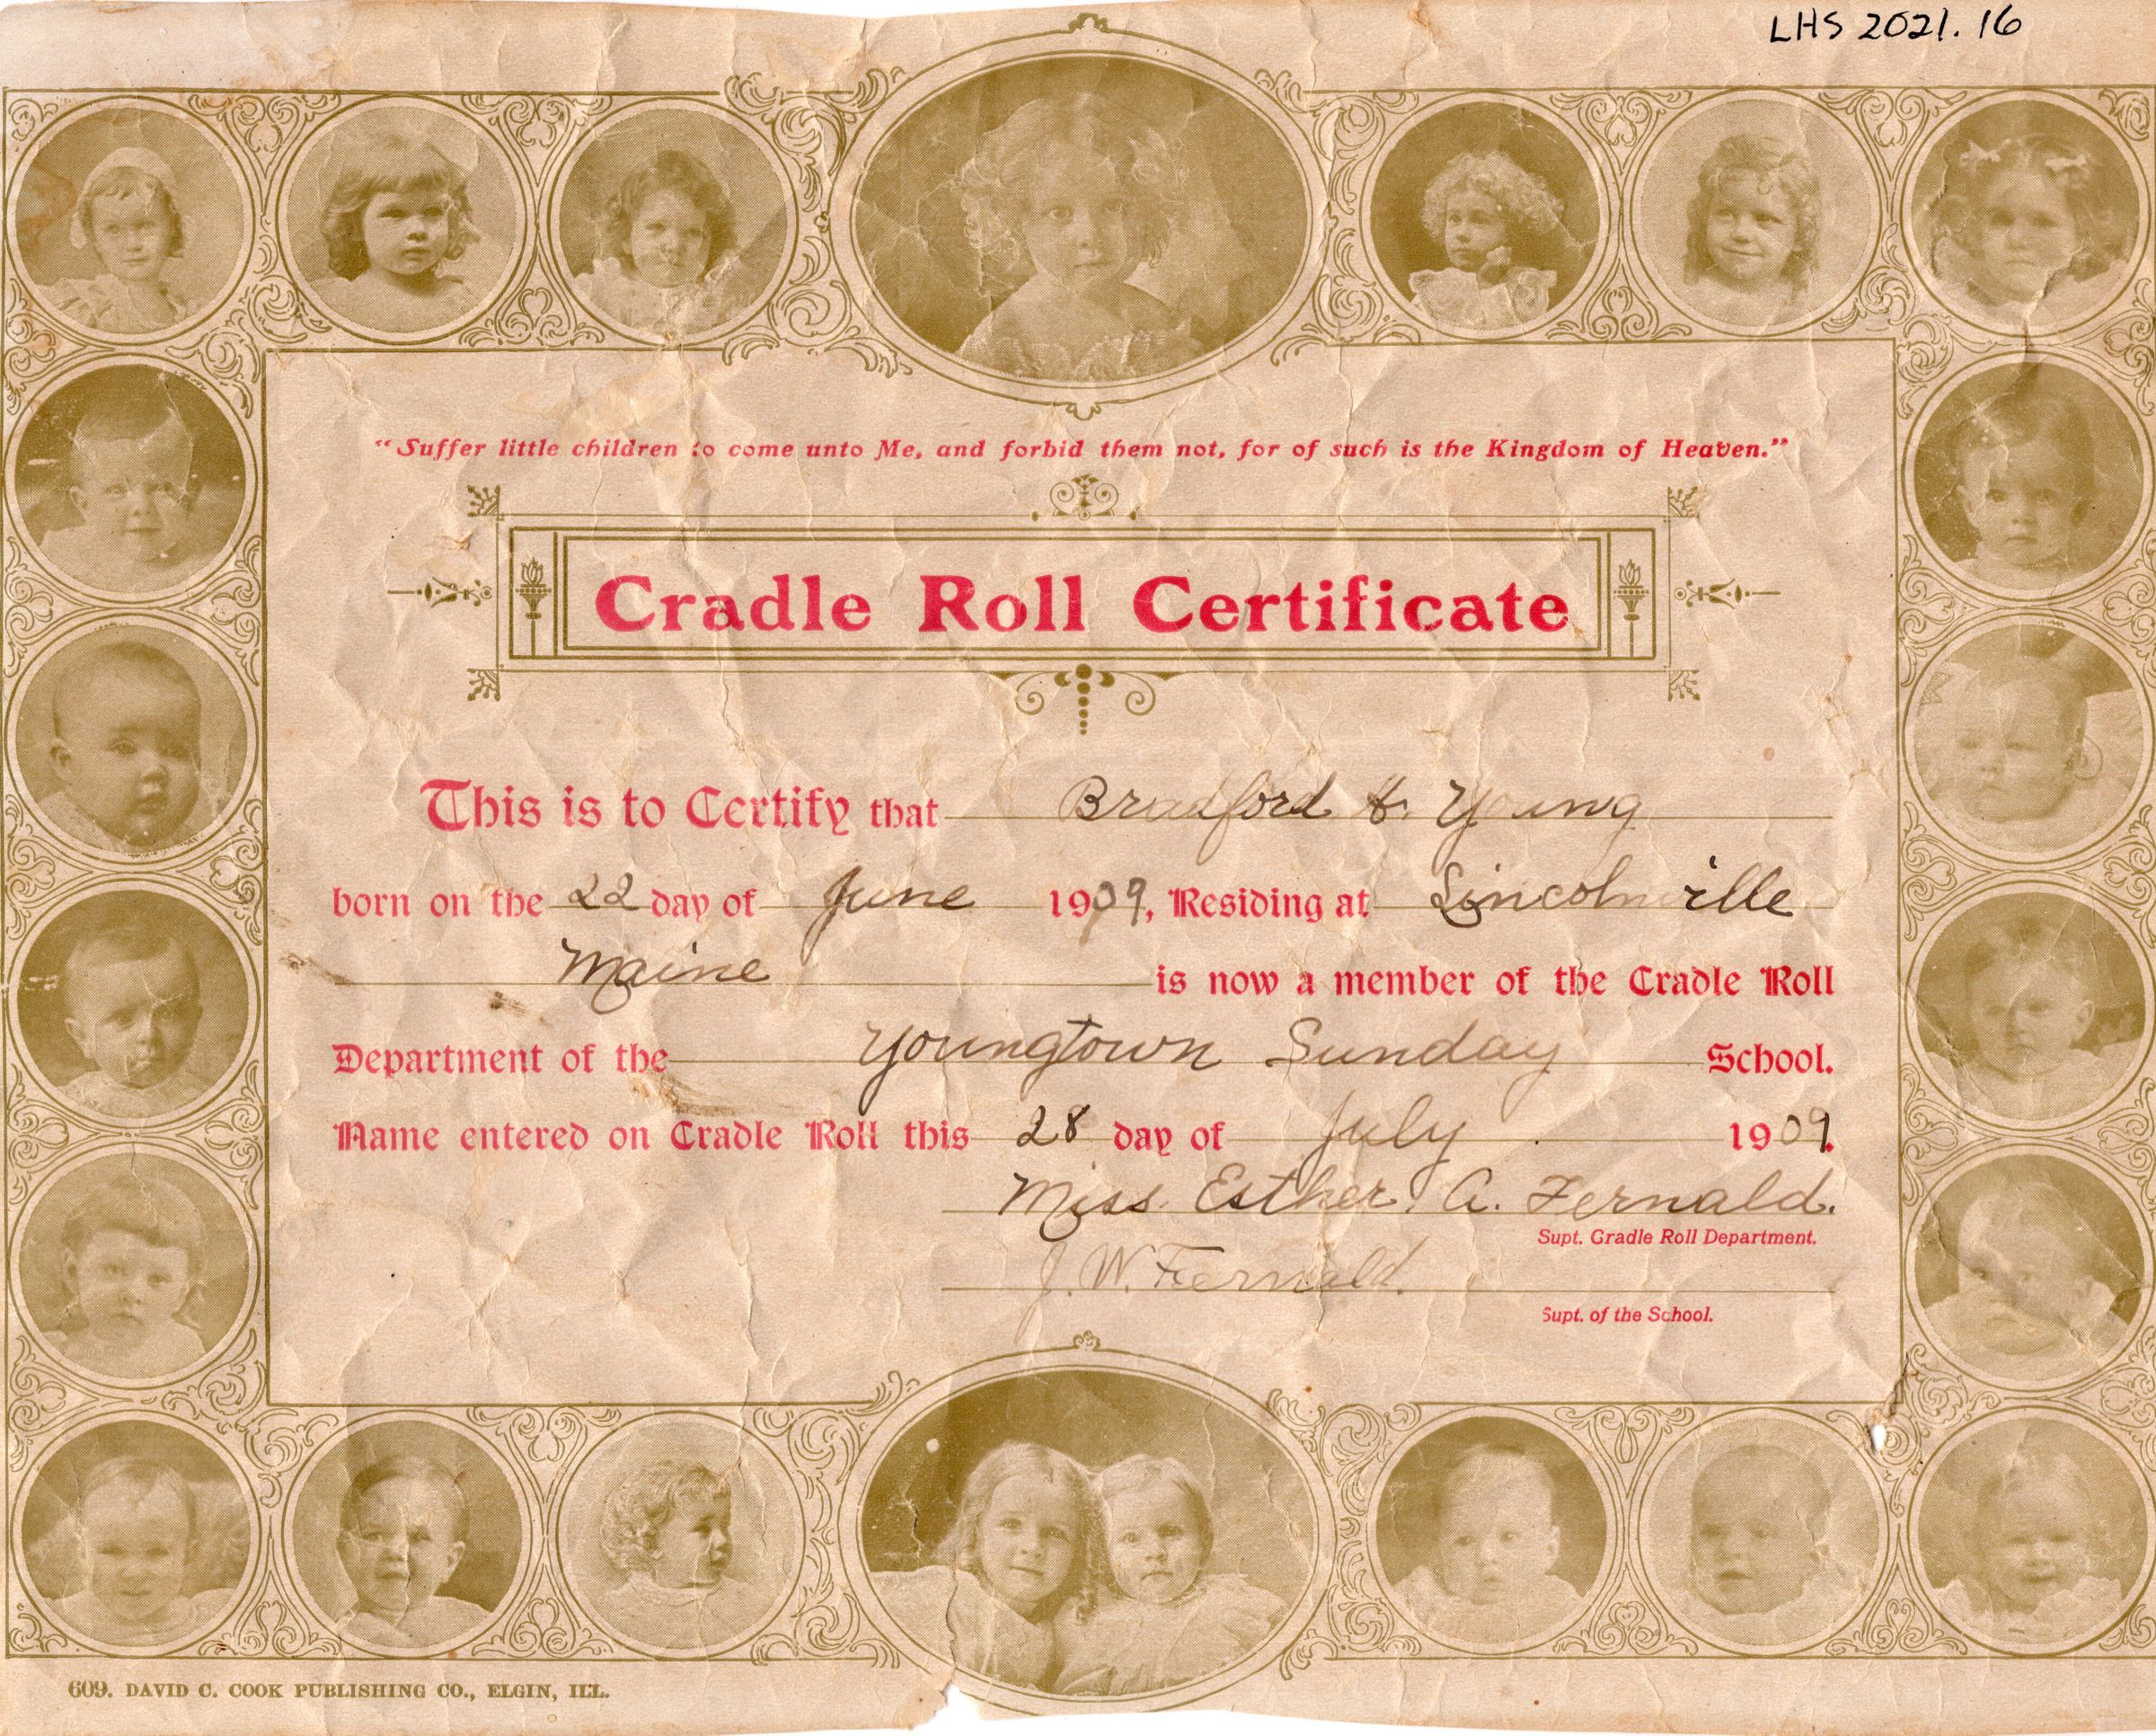 LHS 2021.16
"Suffer little children to come unto Me, and forbid them not, for of such is the Kingdom of Heaven."
Cradle Roll Certificate
This is to Certify that Bradford H. Young
born on the 22 day of June 1909, Residing at Lincolnville
Maine is now a member of the Cradle Roll
Department of the Youngtown Sunday School.
Name entered on Cradle Roll this 28 day of July 1909.
Miss Esther A. Fernald.
Supt. Cradle Roll Department.
J. W. Fernald.
Supt. of the School.
609. DAVID C. COOK PUBLISHING CO., ELGIN, ILL.